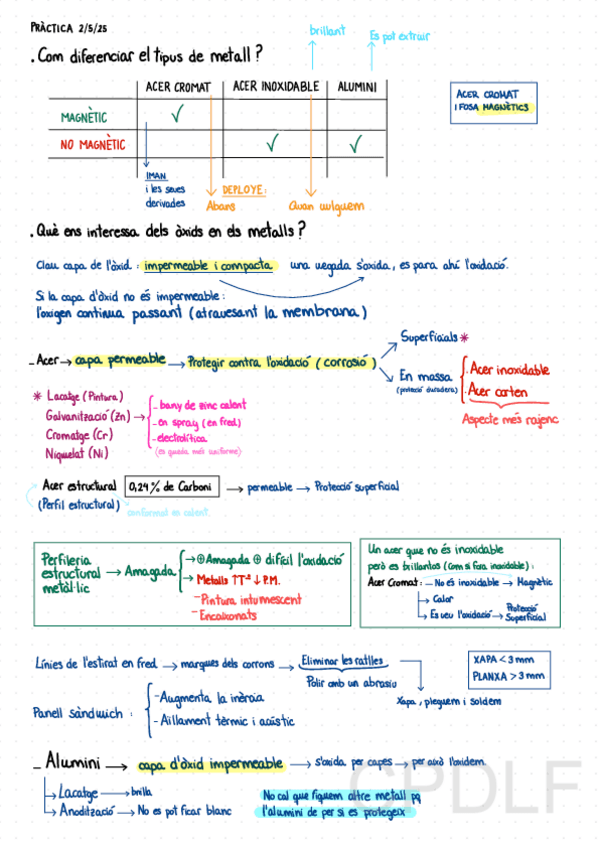 PRÀCTICA 2/5/25
brillant
Es pot extruir
. Com diferenciar el tipus de metall?
ACER CROMAT ACER INOXIDABLE ALUMINI
MAGNÈTIC ✓
NO MAGNÈTIC ✓ ✓
ACER CROMAT
I FOSA MAGNÈTICS
IMAN
i les seues
derivades
DEPLOYE:
Abans
Quan vulguem
. Què ens interessa dels òxids en els metalls?
Clau capa de l'òxid : impermeable i compacta una vegada s'oxida, es para ahí l'oxidació.
Si la capa d'òxid no és impermeable:
l'oxigen continua passant (atravesant la membrana)
Superficials *
- Acer → capa permeable → Protegir contra l'oxidació (corrosió)
En massa
(protecció duradera)
. Acer inoxidable
. Acer corten
Aspecte més rajenc
* Lacatge (Pintura)
Galvanització (Zn) →
Cromatge (Cr)
Niquelat (Ni)
- bany de zinc calent
- en spray (en fred)
- electrolítica
(es queda més uniforme)
Acer estructural 0,24% de Carboni → permeable → Protecció superficial
(Perfil estructural) conformat en calent
Perfileria
estructural
metàl·lic
→ Amagada
→ ⊕ Amagada ⊕ difícil l'oxidació
→ Metalls ↑Tª ↓ P.M.
- Pintura intumescent
- Encaixonats
Un acer que no és inoxidable
però es brillantos (Com si fora inoxidable) :
Acer Cromat: - No és inoxidable → Magnètic
→ Calor
→ Es veu l'oxidació → Protecció
Superficial
Línies de l'estirat en fred → marques dels corrons → Eliminar les ratlles
Polir amb un abrasiu
Xapa, pleguem i soldem
XAPA < 3 mm
PLANXA > 3 mm
Panell sàndwich :
- Augmenta la inèrcia
- Aïllament tèrmic i acústic
- Alumini → capa d'òxid impermeable → s'oxida per capes → per això l'oxidem.
→ Lacatge → brilla
→ Anodització → No es pot ficar blanc
No cal que fiquem altre metall pq
l'alumini de per si es protegeix
CPDLF